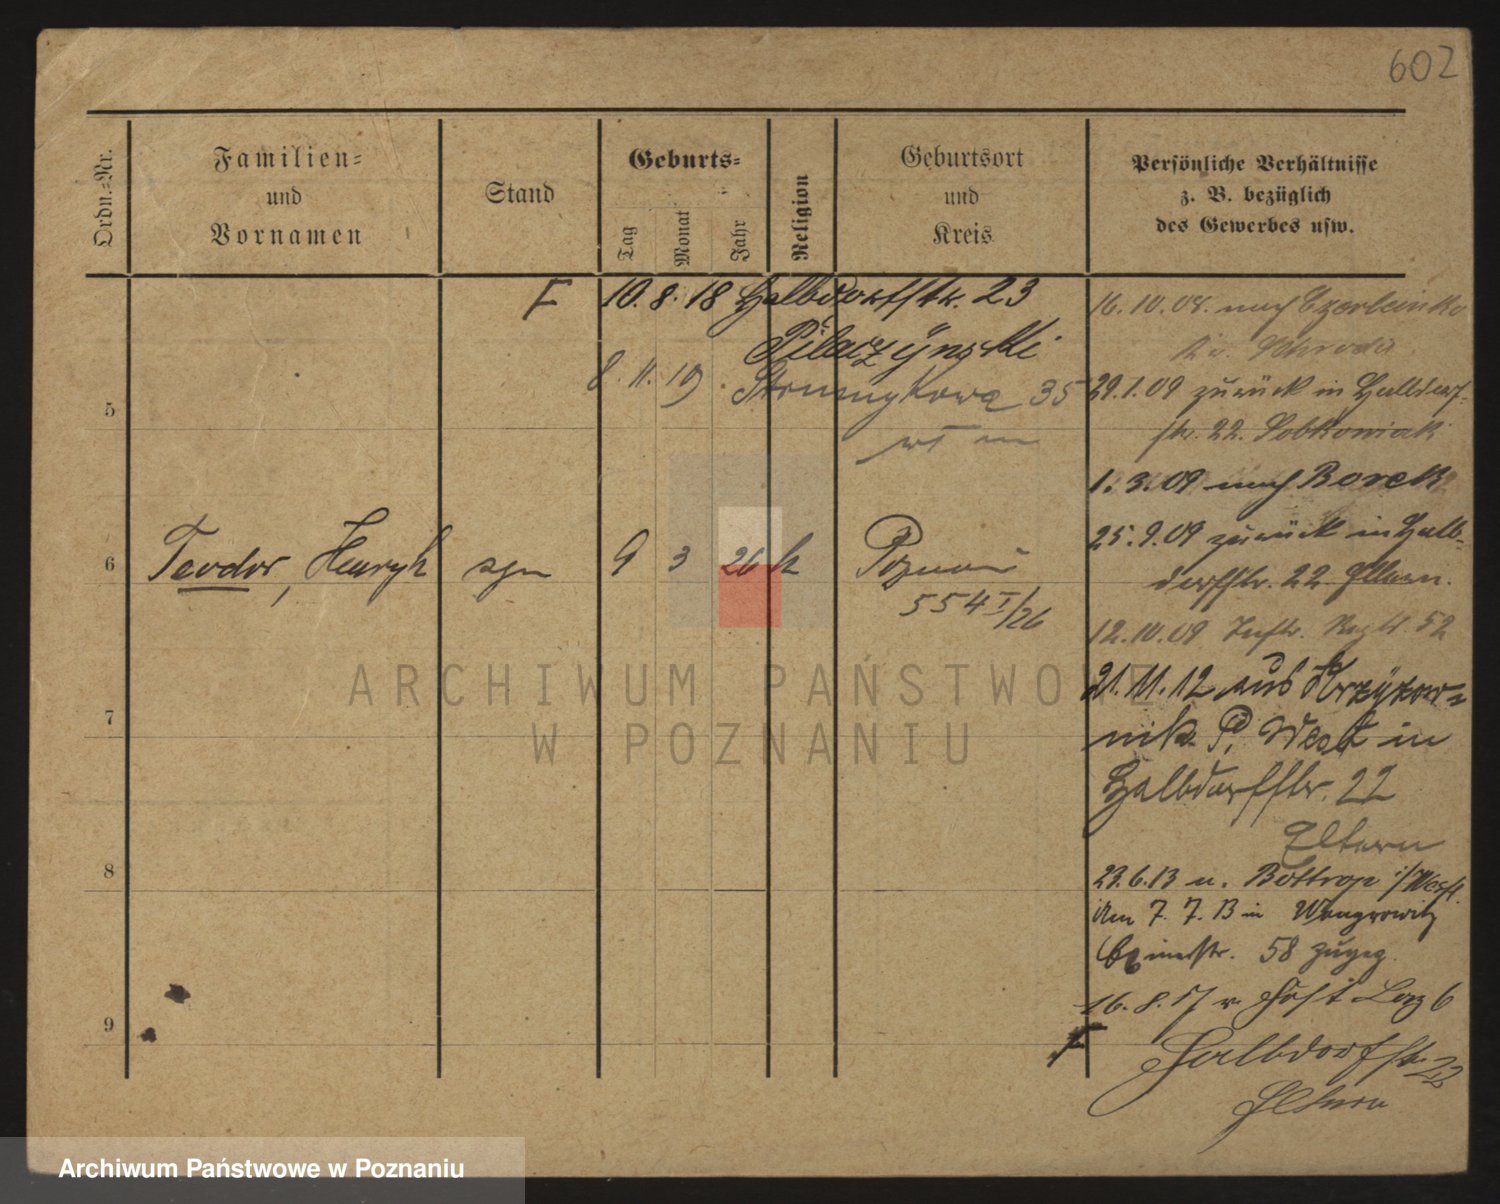 602
Ordn.-Nr.
Familien-
und
Vornamen
Stand
Geburts-
Tag
Monat
Jahr
Religion
Geburtsort
und
Kreis
Persönliche Verhältnisse
z. B. bezüglich
des Gewerbes usw.
F 10.8.18 Halbdorfstr. 23
8.11.19. Strumykowa 35
5
6 Teodor, Henryk syn 9 3 26 k Poznań
554 I/26
7
8
9
16.10.08. nach
29.1.09 zurück in Halbdorf-
str. 22. Sobkowiak
1.3.09 nach Borek
25.9.09 zurück in Halb-
dorfstr. 22 Eltern.
12.10.09 Inftr. Regt. 52
21.11.12 aus
in
Halbdorfstr. 22
Eltern
23.6.13 n. Bottrop i/Westf.
Am 7.7.13 in Wongrowitz
58 zugez.
16.8.17 v.
F Halbdorfstr 22
Eltern
ARCHIWUM PAŃSTWOWE
W POZNANIU
Archiwum Państwowe w Poznaniu